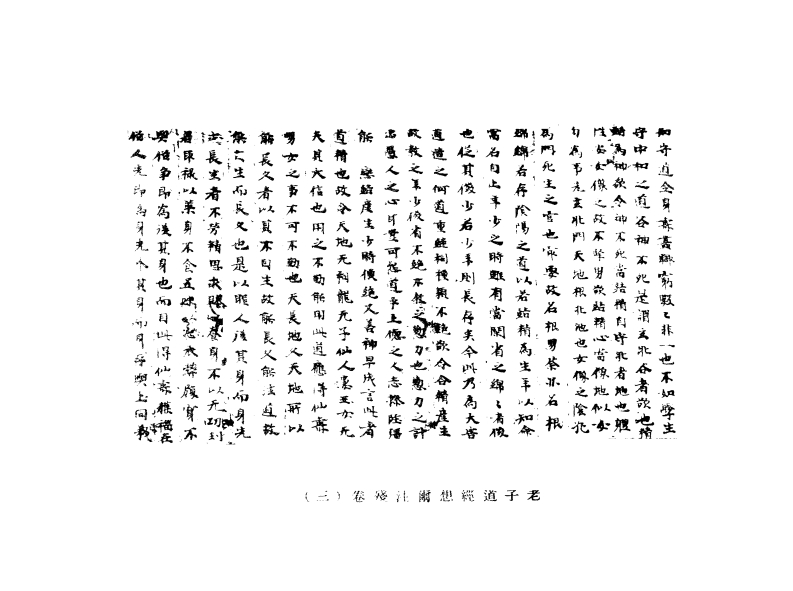 和守道全身壽盡輒窮數數非一也不如學生
守中和之道谷神不死是謂玄牝谷者欲也精
結為神欲令神不死當結精自守牝者地也體
性安女像之故不掔男欲結精心當像地似女
勿為事先玄牝門天地根牝地也女像之陰孔
為門死生之官也最要故名根男荼亦名根
綿綿若存陰陽之道以若結精為生年以知命
當名自止年少之時雖有當閑省之綿綿者微
也從其微少若少年則長存矣今此乃為大害
道造之何道重繼祠種類不絕欲令合精產生
故教之年少微省不絕不教之懃力也懃力之計
出愚人之心耳豈可怨道乎上德之人志操堅彊
能不戀結產生少時便絕又善神早成言此者
道精也故令天地无祠龍无子仙人妻玉女无
夫其大信也用之不勤能用此道應得仙壽
男女之事不可不勤也天長地久天地所以
能長久者以其不自生故能長久能法道故
能自生而長久也是以聖人後其身而身先
求長生者不勞精思求財以養身不以无功劫
君取祿以榮身不食五味以恣衣弊履穿不
與俗爭即為後其身也而目此得仙壽獲福在
俗人先即為身先外其身而身存與上同義
老子道經想爾注殘卷（三）